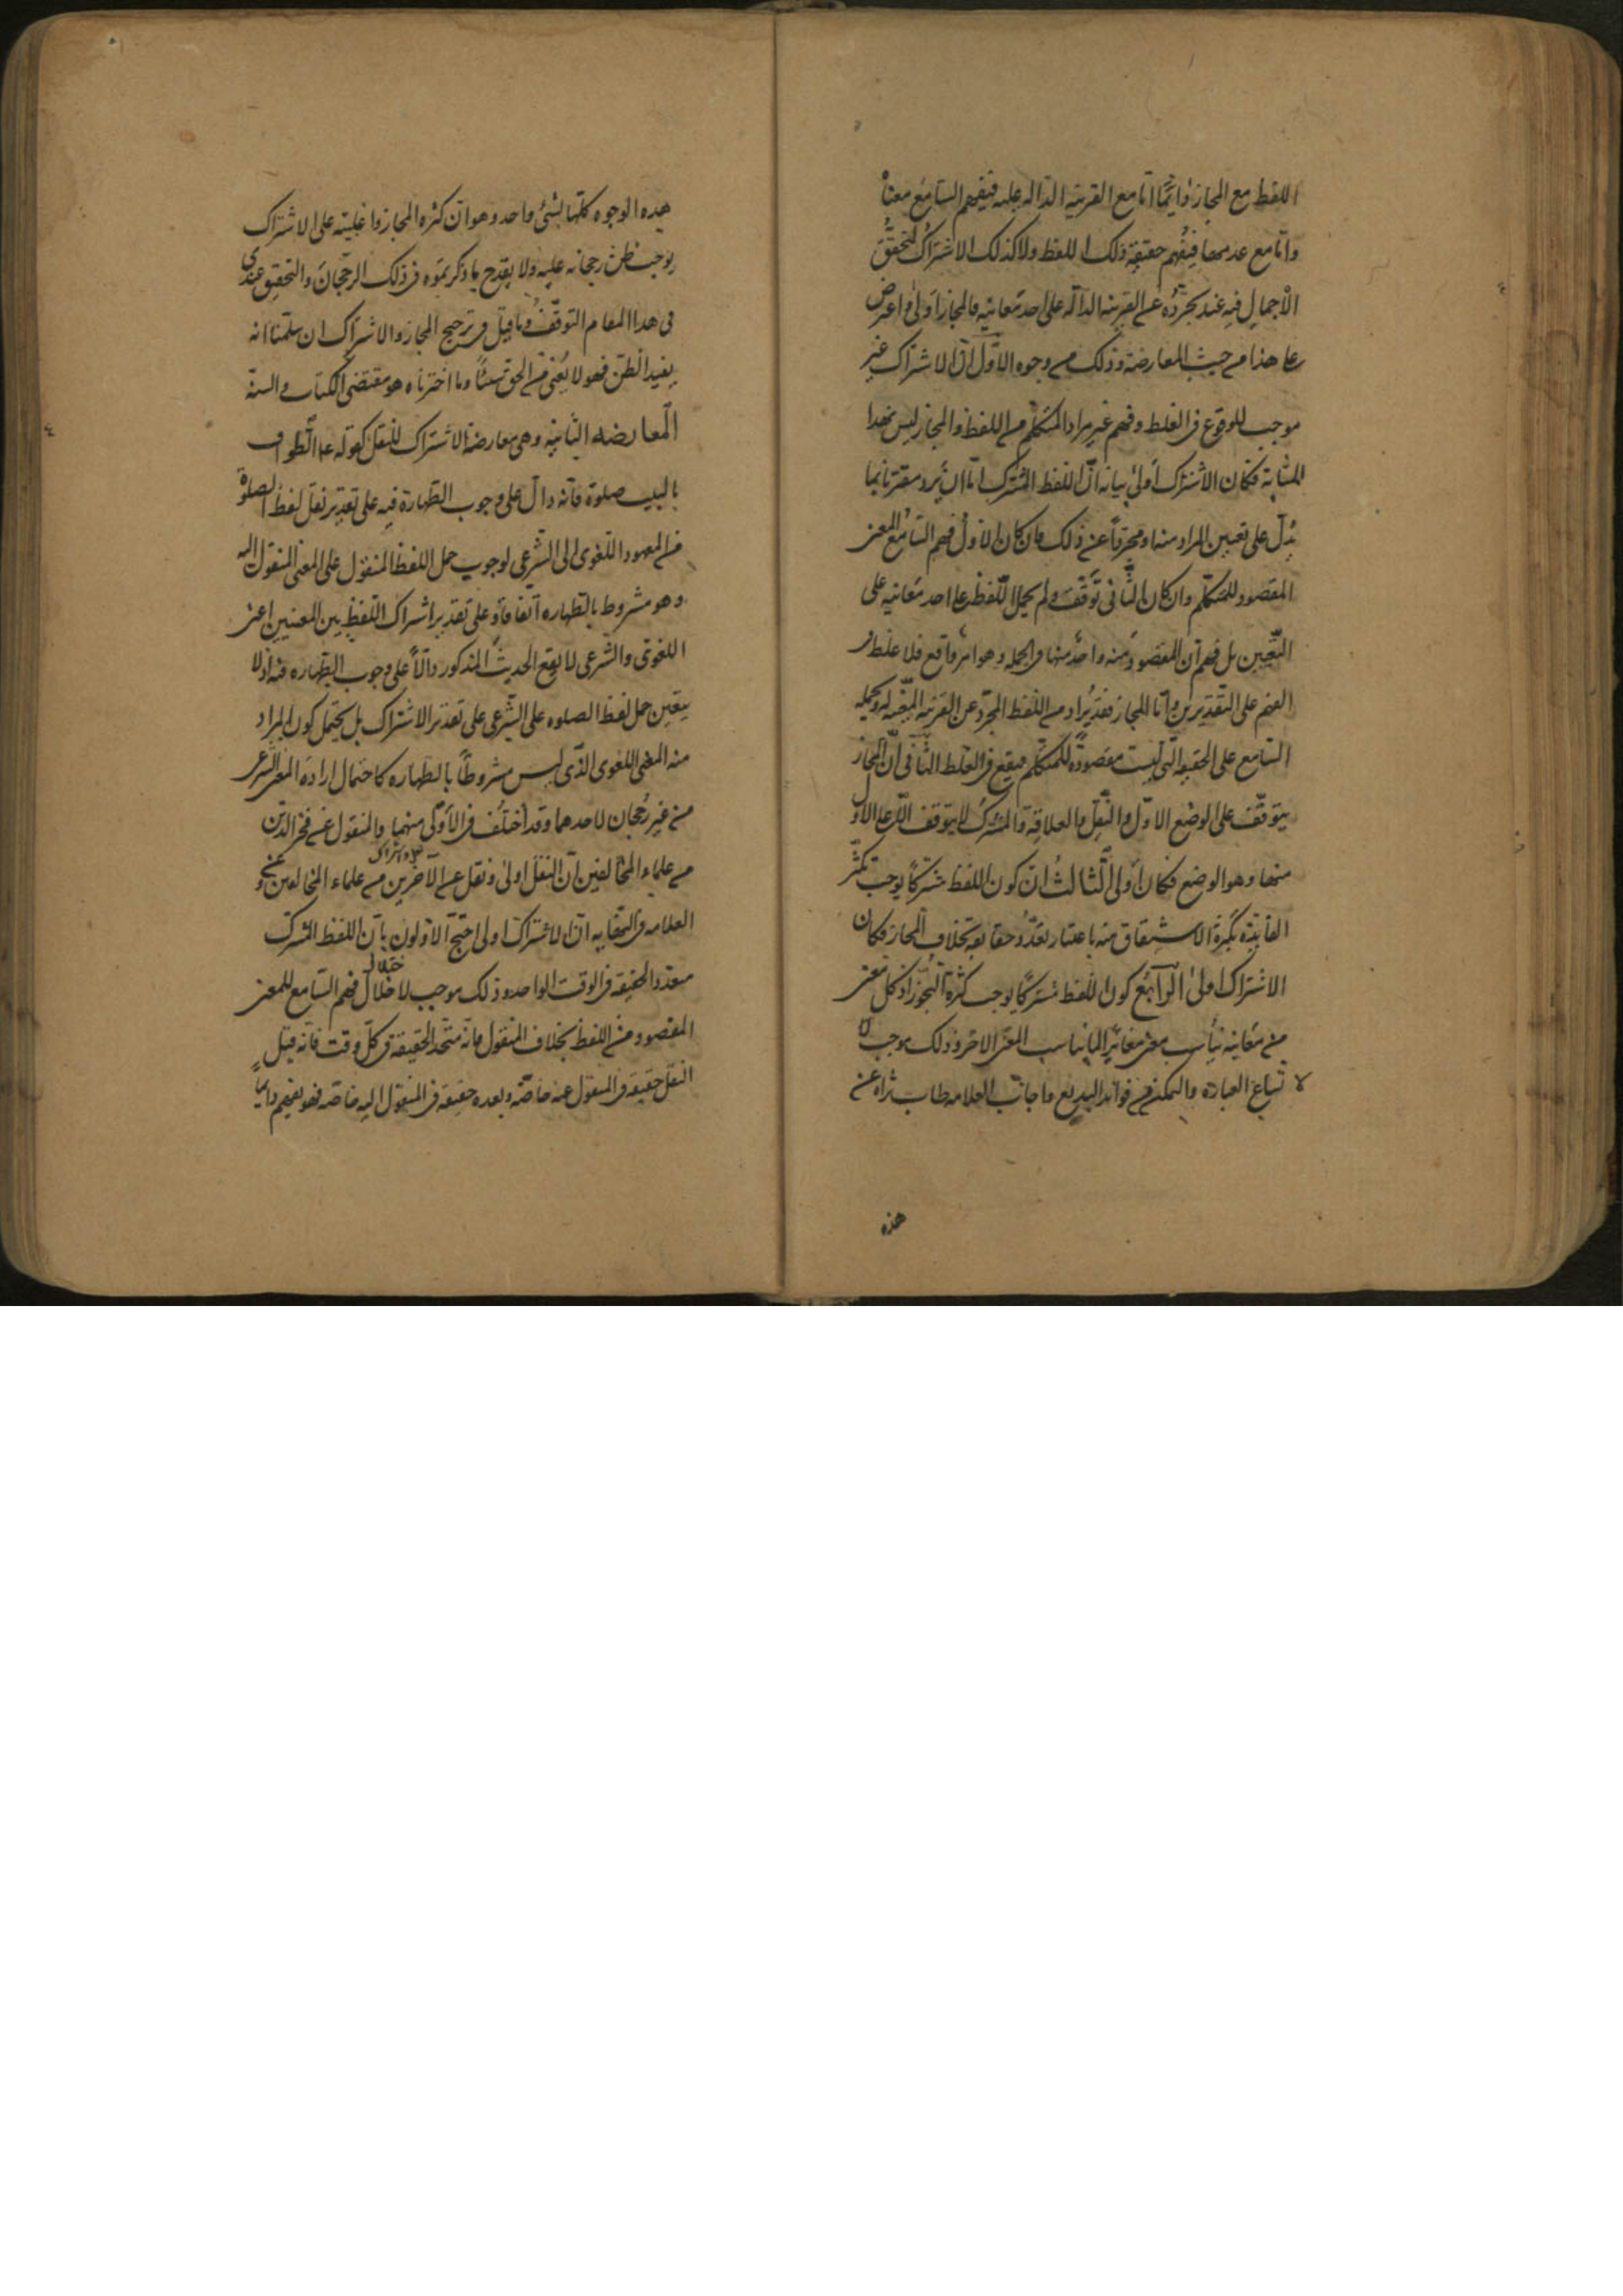 اللفظ مع المجاز دايما اما مع القرينة الدالة عليه فيفهم السامع معناه
واما مع عدمها فيفهم حقيقة ذلك اللفظ ولا كذلك الاشتراك لتحقق
الاجمال فيه عند تجرده عن القرينة الدالة على احد معانيه فالمجاز اولى واعترض
على هذا من حيث المعارضة وذلك من وجوه الاول ان الاشتراك غير
موجب للوقوع فى الغلط وفهم غير مراد المتكلم من اللفظ والمجاز ليس بهذا
المثابة فكان الاشتراك اولى بيانه ان اللفظ المشترك اما ان يرد مقترنا بما
يدل على تعيين المراد منه او مجردا عن ذلك فان كان الاول فهم السامع المعنى
المقصود للمتكلم وان كان الثانى توقف ولم يحمل اللفظ على احد معانيه على
التعيين بل فهم ان المقصود منه واحد منها فى الجملة وهو امر واقع فلا غلط فى
الفهم على التقديرين واما المجاز فقد يراد من اللفظ المجرد عن القرينة المعينة له ويحمله
السامع على الحقيقة التى ليست مقصودة للمتكلم فيقع فى الغلط الثانى ان المجاز
يتوقف على الوضع الاول والنقل والعلاقة والمشترك لا يتوقف الا على الاول
منها وهو الوضع فكان اولى الثالث ان كون اللفظ مشتركا يوجب تكثر
الفايدة بكثرة الاشتقاق منه باعتبار تعدد حقايقه بخلاف المجاز فكان
الاشتراك اولى الرابع كون اللفظ مشتركا يوجب كثرة التجوز اذ كل معنى
من معانيه يناسب معنى مغاير لما يناسب المعنى الاخر وذلك موجب
لاتساع العبارة والتمكن من فوائد البديع واجاب العلامه طاب ثراه عن
هذه
هذه الوجوه كلها بشئ واحد وهو ان كثره المجاز واغلبيته على الاشتراك
يوجب ظن رجحانه عليه ولا يقدح ما ذكرتموه فى ذلك الرجحان والتحقيق عندى
فى هذا المقام التوقف وما قيل فى ترجيح المجاز والاشتراك ان سلمنا انه
يفيد الظن فهو لا يغنى من الحق شيئا وما اخترناه هو مقتضى الكتاب والسنة
المعارضه الثانية وهى معارضة الاشتراك للنقل كقوله ع الطواف
بالبيت صلوة فانه دال على وجوب الطهارة فيه على تقدير نقل لفظ الصلوة
من المعهود اللغوى الى الشرعى لوجوب حمل اللفظ المنقول على المعنى المنقول اليه
وهو مشروط بالطهاره اتفاقا وعلى تقدير اشتراك اللفظ بين المعنيين اعنى
اللغوى والشرعى لا يقع الحديث المذكور دالا على وجوب الطهاره فيه اذ لا
يتعين حمل لفظ الصلوه على الشرعى على تقدير الاشتراك بل يحتمل كون المراد
منه المعنى اللغوى الذى ليس مشروطا بالطهاره كاحتمال ارادة المعنى الشرعى
من غير رجحان لاحدهما وقد اختلف فى الاولى منهما والمنقول عن فخر الدين
من علماء المخالفين ان النقل اولى ونقل عن الآخرين من علماء المخالفين
العلامه فى النهايه ان الاشتراك اولى احتج الاولون بان اللفظ المشترك
متعدد الحقيقة فى الوقت الواحد وذلك موجب لاختلال فهم السامع للمعنى
المقصود من اللفظ بخلاف المنقول فانه متحد الحقيقة فى كل وقت فانه قبل
النقل حقيقة فى المنقول عنه خاصة وبعده حقيقة فى المنقول اليه خاصة فهو يفهم دايما